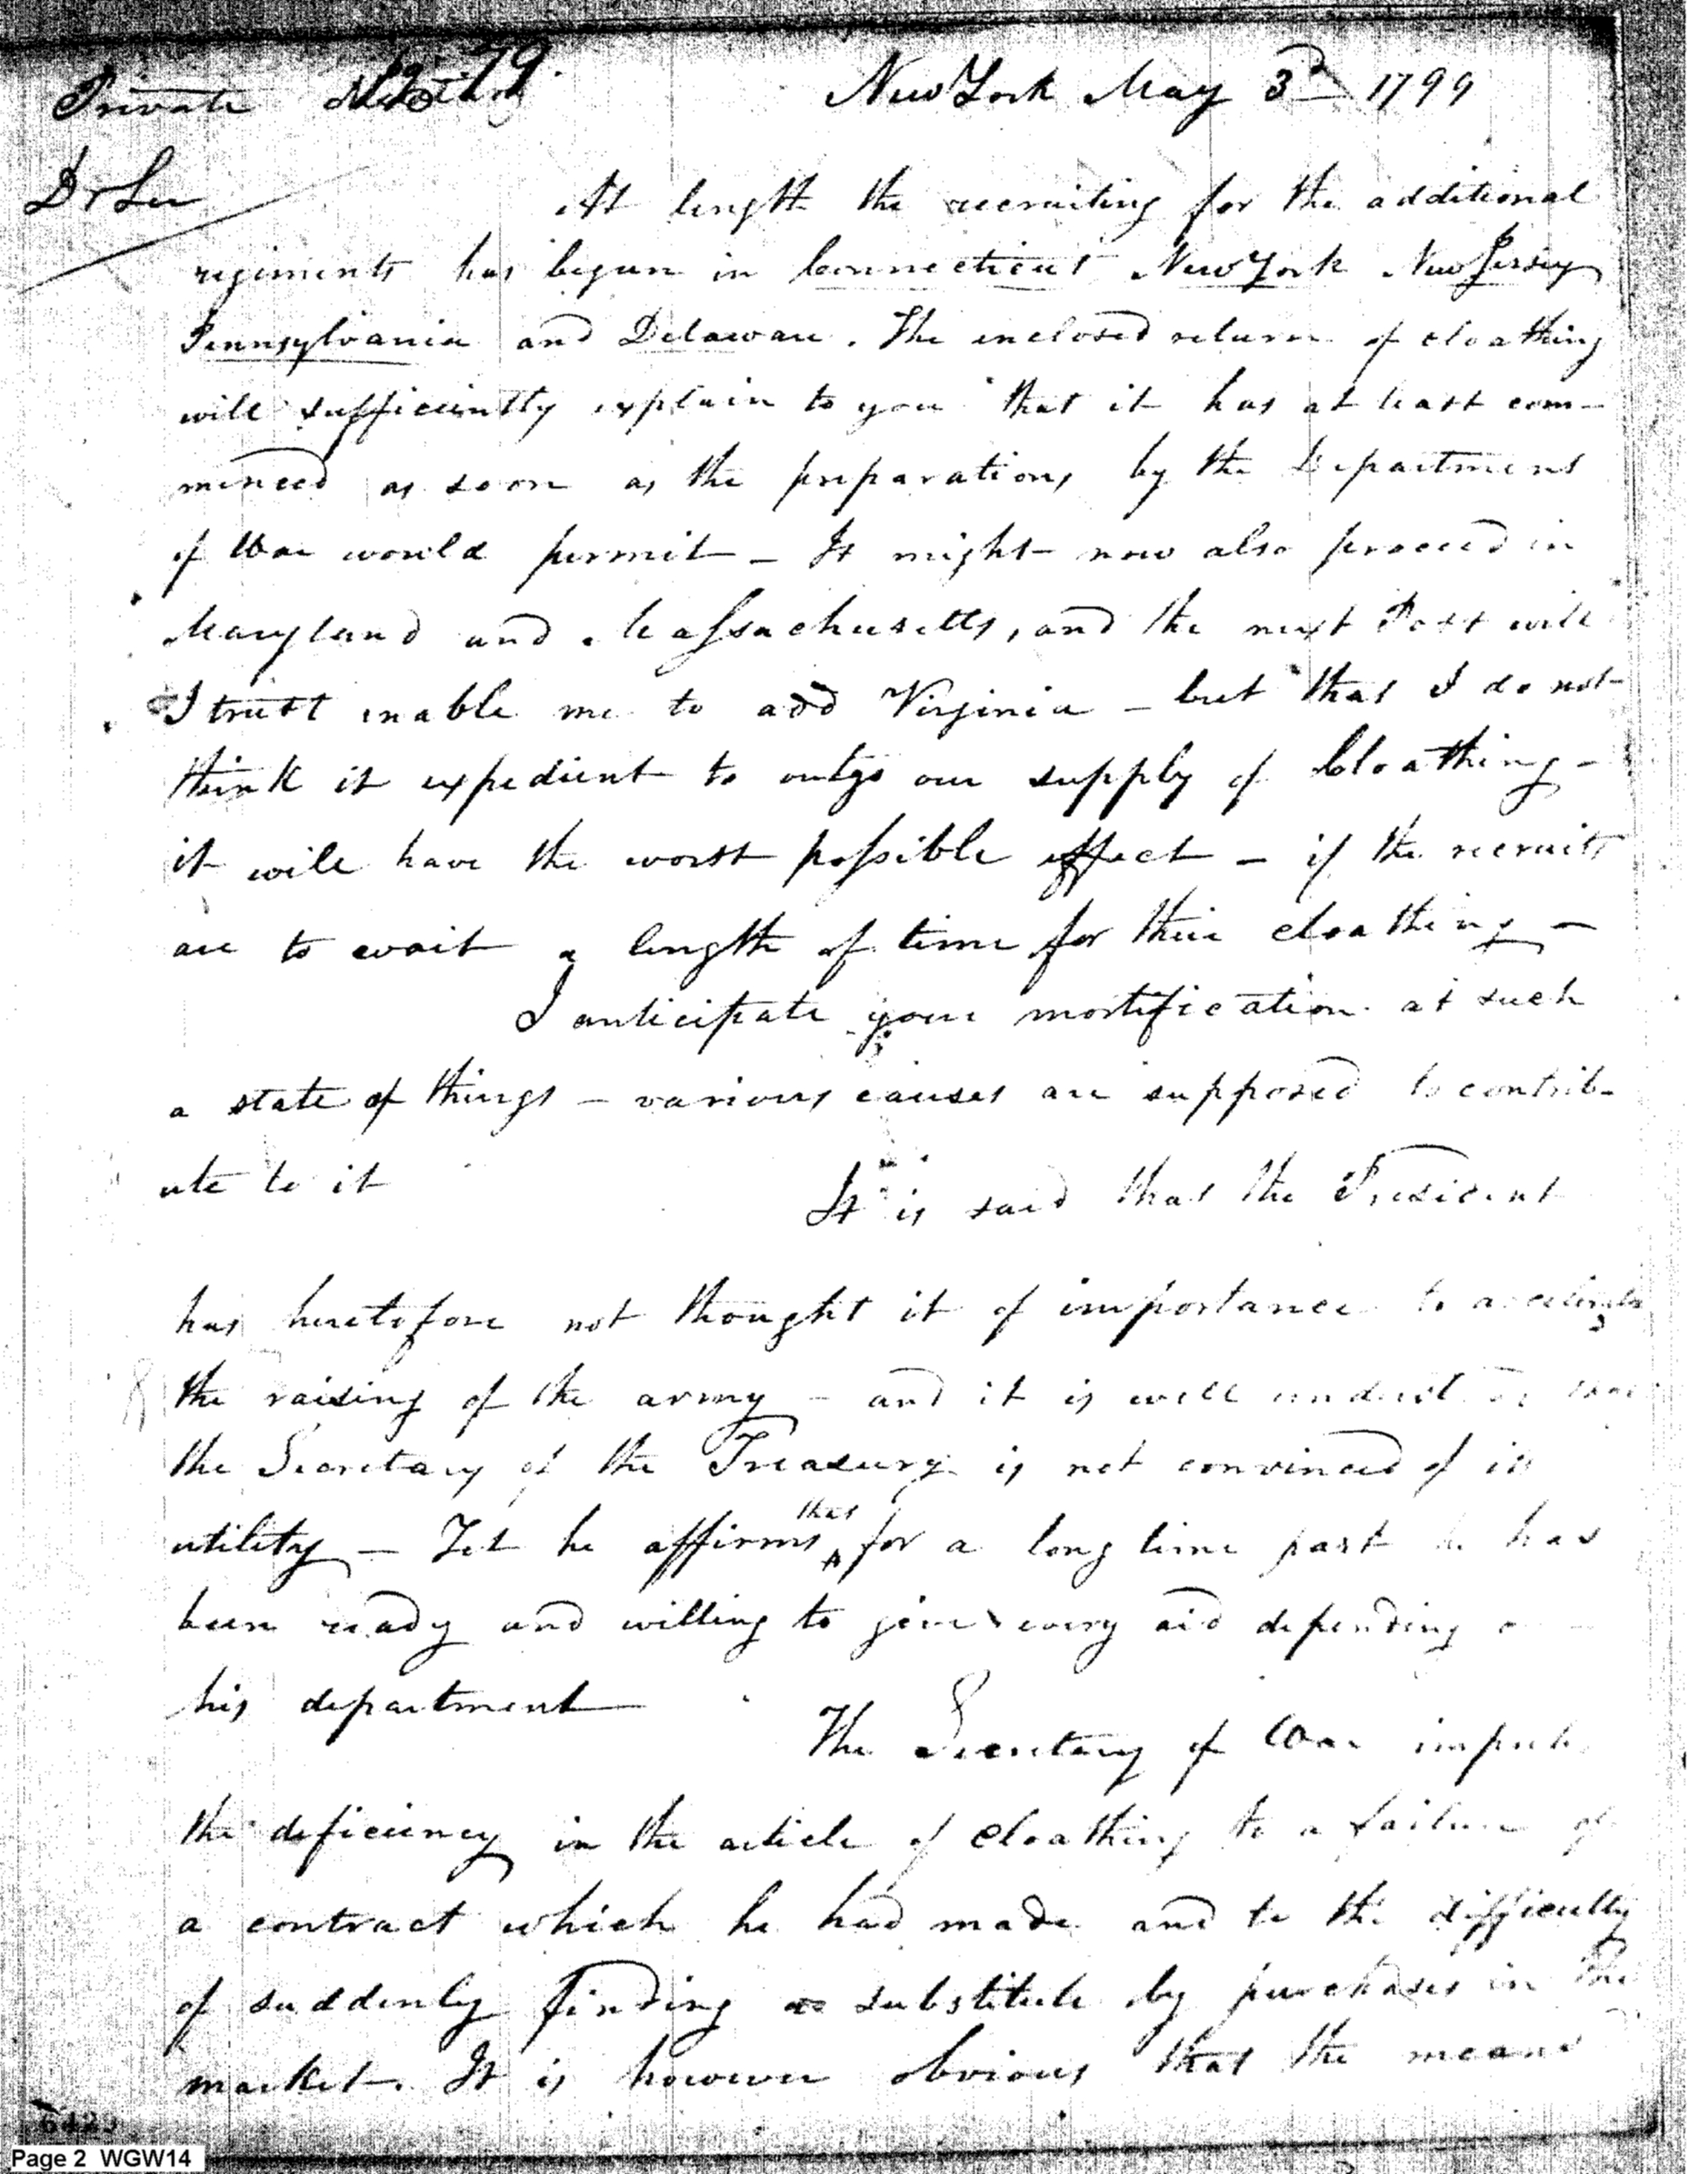 Private No. 79. New York May 3d 1799
Dr Sir
At length the recruiting for the additional
regiments has begun in Connecticut New York New Jersey
Pennsylvania and Delaware. The inclosed return of cloathing
will sufficiently explain to you that it has at least com-
menced as soon as the preparations by the Department
of War would permit — It might now also proceed in
Maryland and Massachusetts, and the next Post will
I trust enable me to add Virginia — but that I do not
think it expedient to outgo our supply of Cloathing —
it will have the worst possible effect — if the recruits
are to wait a length of time for their cloathing —
I anticipate your mortification at such
a state of things — various causes are supposed to contrib-
ute to it
It is said that the President
has heretofore not thought it of importance to accelerate
the raising of the army — and it is well understood that
the Secretary of the Treasury is not convinced of its
utility — Yet he affirms that for a long time past he has
been ready and willing to give every aid depending on
his department
The Secretary of War imputes
the deficiency in the article of cloathing to a failure of
a contract which he had made and to the difficulty
of suddenly finding a substitute by purchases in the
market. It is however obvious that the means
Page 2 WGW14